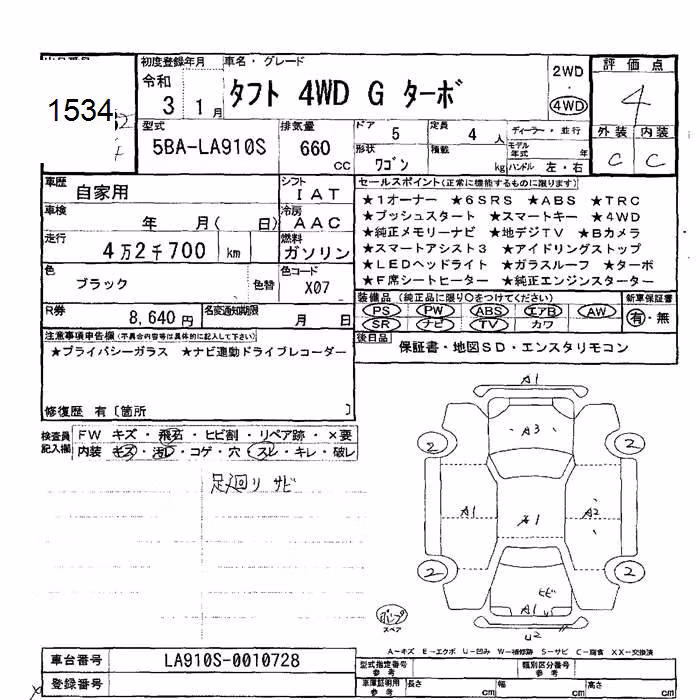 1534
初度登録年月
令和
3 1月
車名・グレード
タフト 4WD G ターボ
2WD
・
4WD
評価点
4
外装 内装
C C
型式
5BA-LA910S
排気量
660
CC
ドア
5
定員
4 人
ディーラー・並行
形状
ワゴン
積載
kg
モデル年式
年
ハンドル 左・右
車歴
自家用
シフト
IAT
車検
年 月( 日)
冷房
AAC
走行
4万2千700 km
燃料
ガソリン
色
ブラック
色替
色コード
X07
R券
8,640円
名変通知期限
月 日
セールスポイント(正常に機能するものに限ります)
★1オーナー ★6SRS ★ABS ★TRC
★プッシュスタート ★スマートキー ★4WD
★純正メモリーナビ ★地デジTV ★Bカメラ
★スマートアシスト3 ★アイドリングストップ
★LEDヘッドライト ★ガラスルーフ ★ターボ
★F席シートヒーター ★純正エンジンスターター
装備品(純正品に限り○をつけてください)
PS PW ABS エアB AW
SR ナビ TV カワ
新車保証書
有・無
後日品
保証書・地図SD・エンスタリモコン
注意事項申告欄(不具合内容等は具体的に記入して下さい)
★プライバシーガラス ★ナビ連動ドライブレコーダー
修復歴 有〔箇所 〕
検査員記入欄
FW キズ・飛石・ヒビ割・リペア跡・×要
内装 キズ・汚れ・コゲ・穴・スレ・キレ・破レ
足廻り サビ
A1
A3
2 2
A1 A1 A2
2 2
ヒビ
A1 U1
U2
スペア
A-キズ E-エクボ U-凹み W-補修跡 S-サビ C-腐食 XX-交換済
車台番号
LA910S-0010728
登録番号
型式指定番号
参考
類別区分番号
参考
車庫証明用
参考
長さ cm
幅 cm
高さ cm